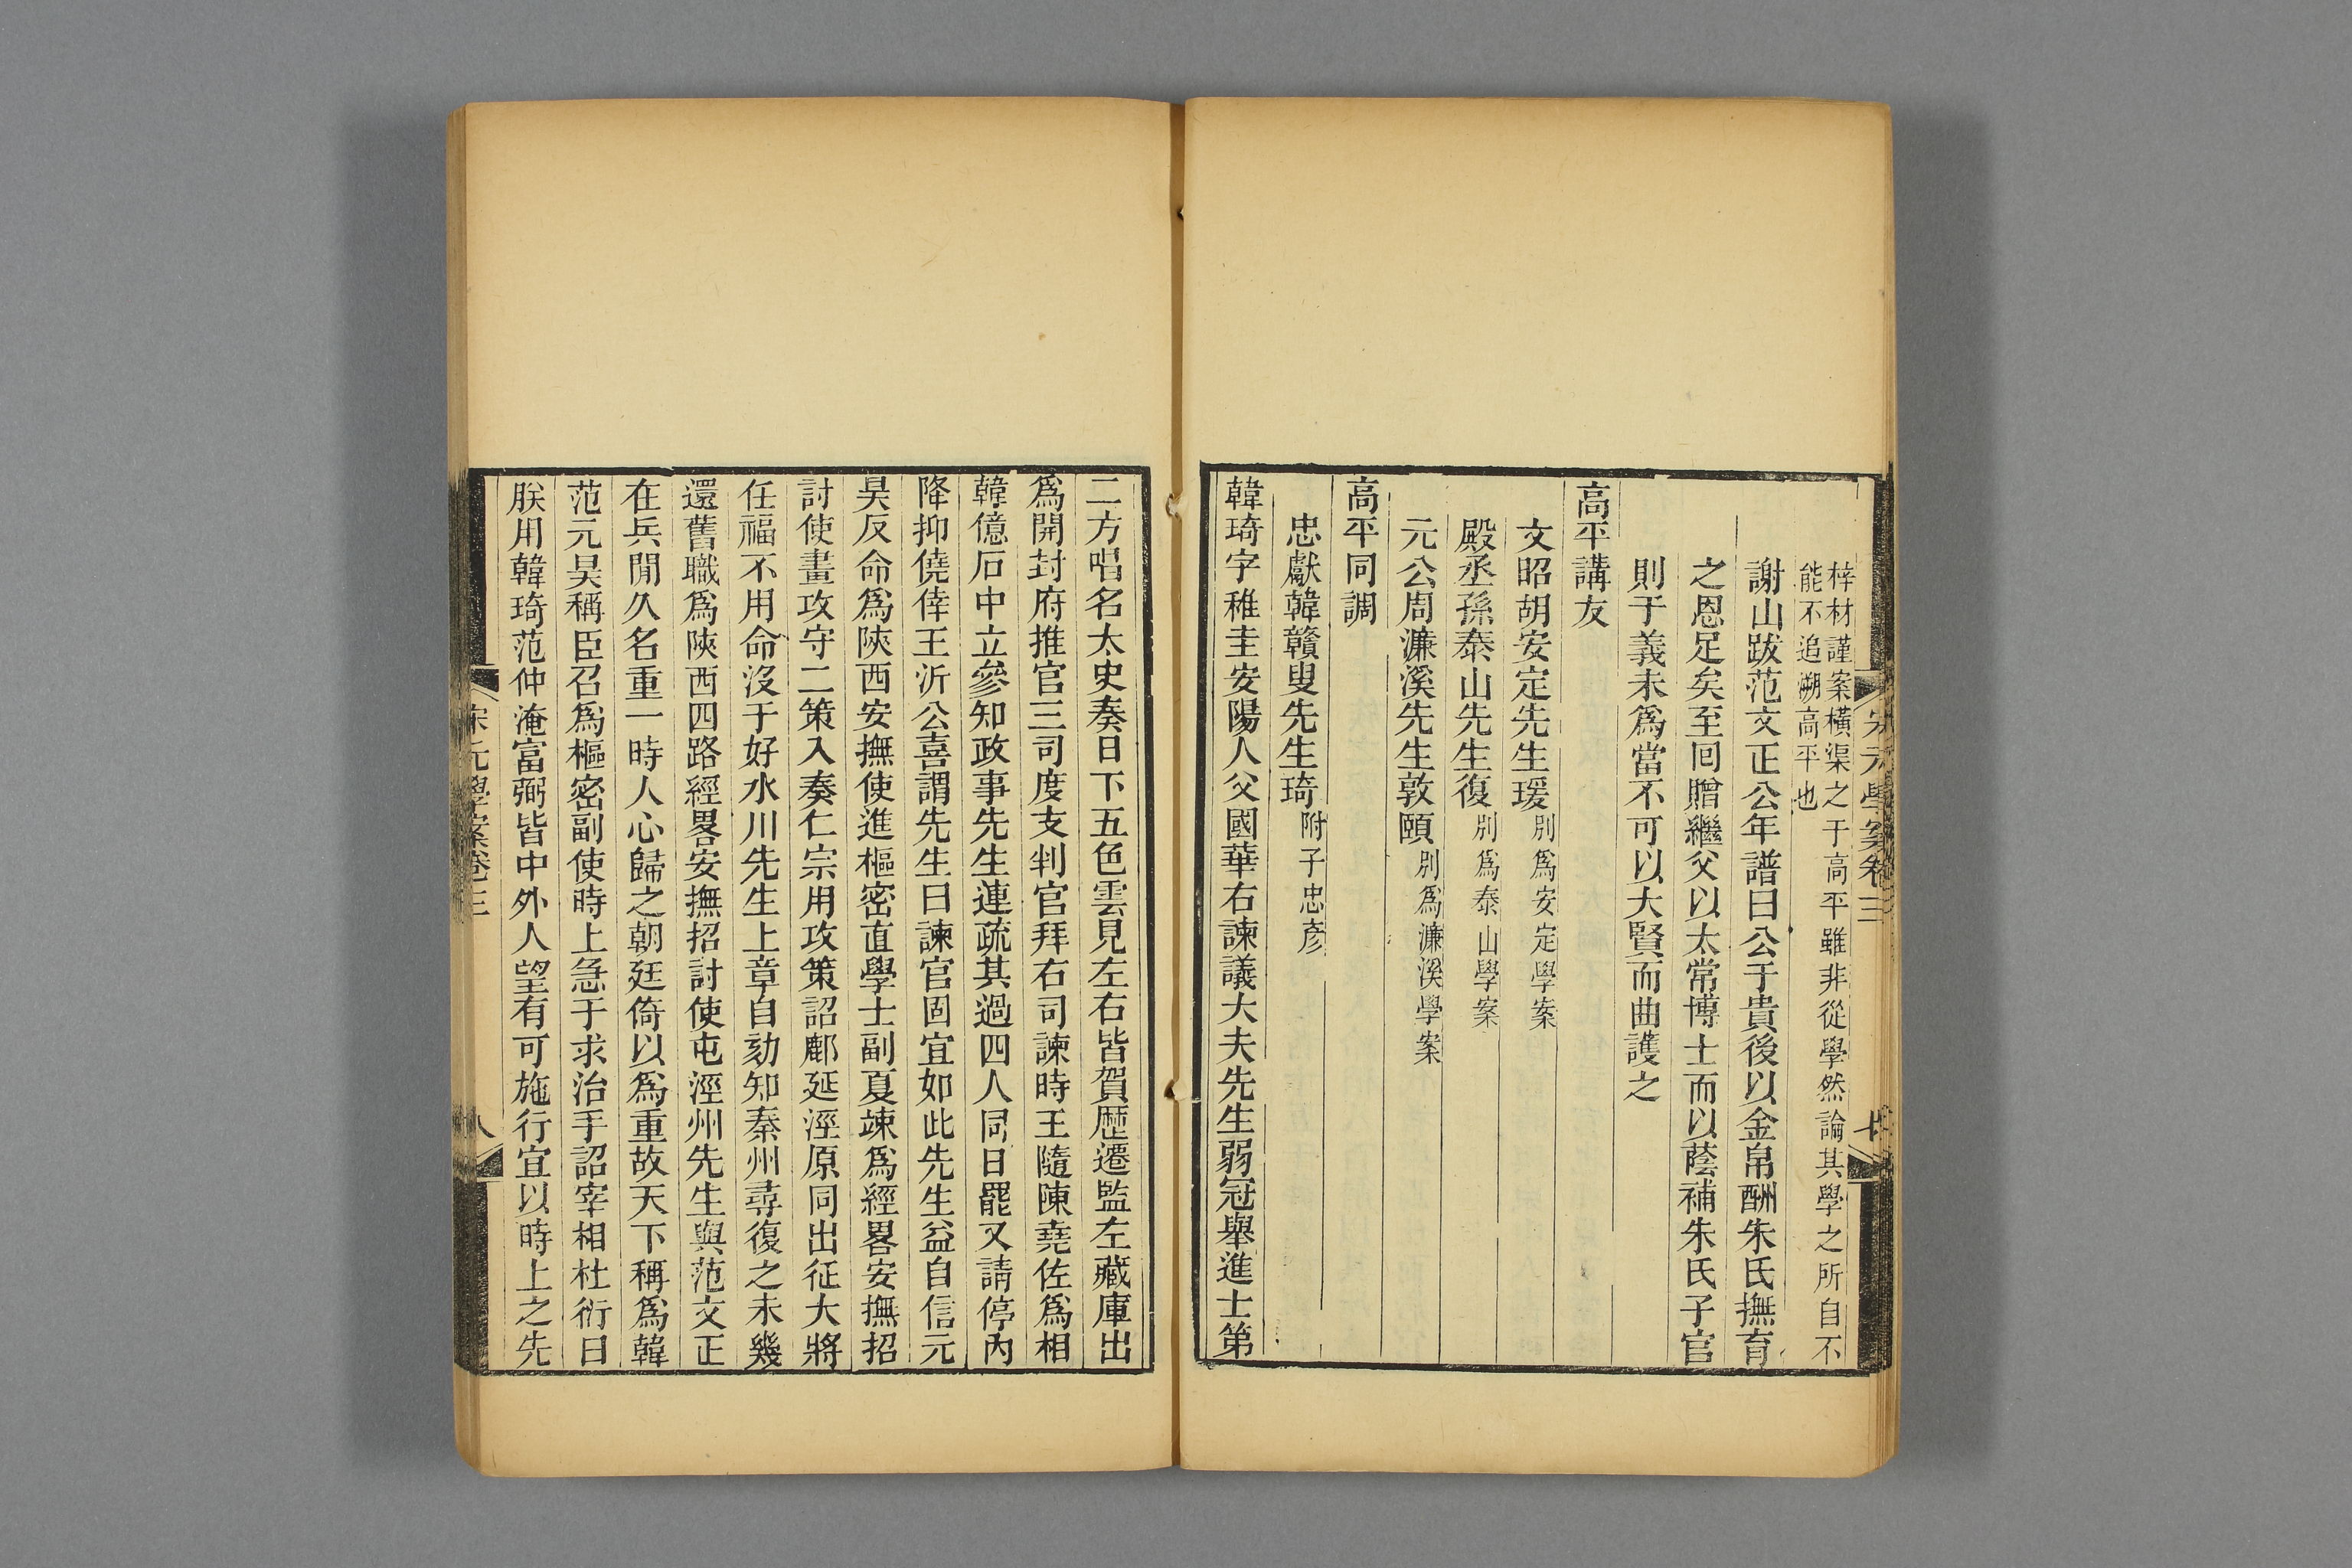 宋元學案卷三
七
梓材謹案橫渠之于高平雖非從學然論其學之所自不
能不追溯高平也
謝山跋范文正公年譜曰公于貴後以金帛酬朱氏撫育
之恩足矣至回贈繼父以太常博士而以蔭補朱氏子官
則于義未爲當不可以大賢而曲護之
高平講友
文昭胡安定先生瑗別爲安定學案
殿丞孫泰山先生復別爲泰山學案
元公周濂溪先生敦頤別爲濂溪學案
高平同調
忠獻韓贛叟先生琦附子忠彥
韓琦字稚圭安陽人父國華右諫議大夫先生弱冠舉進士第
二方唱名太史奏日下五色雲見左右皆賀歷遷監左藏庫出
爲開封府推官三司度支判官拜右司諫時王隨陳堯佐爲相
韓億石中立參知政事先生連疏其過四人同日罷又請停內
降抑僥倖王沂公喜謂先生曰諫官固宜如此先生益自信元
昊反命爲陝西安撫使進樞密直學士副夏竦爲經畧安撫招
討使畫攻守二策入奏仁宗用攻策詔鄜延涇原同出征大將
任福不用命沒于好水川先生上章自劾知秦州尋復之未幾
還舊職爲陝西四路經畧安撫招討使屯涇州先生與范文正
在兵閒久名重一時人心歸之朝廷倚以爲重故天下稱爲韓
范元昊稱臣召爲樞密副使時上急于求治手詔宰相杜衍曰
朕用韓琦范仲淹富弼皆中外人望有可施行宜以時上之先
宋元學案卷三
八